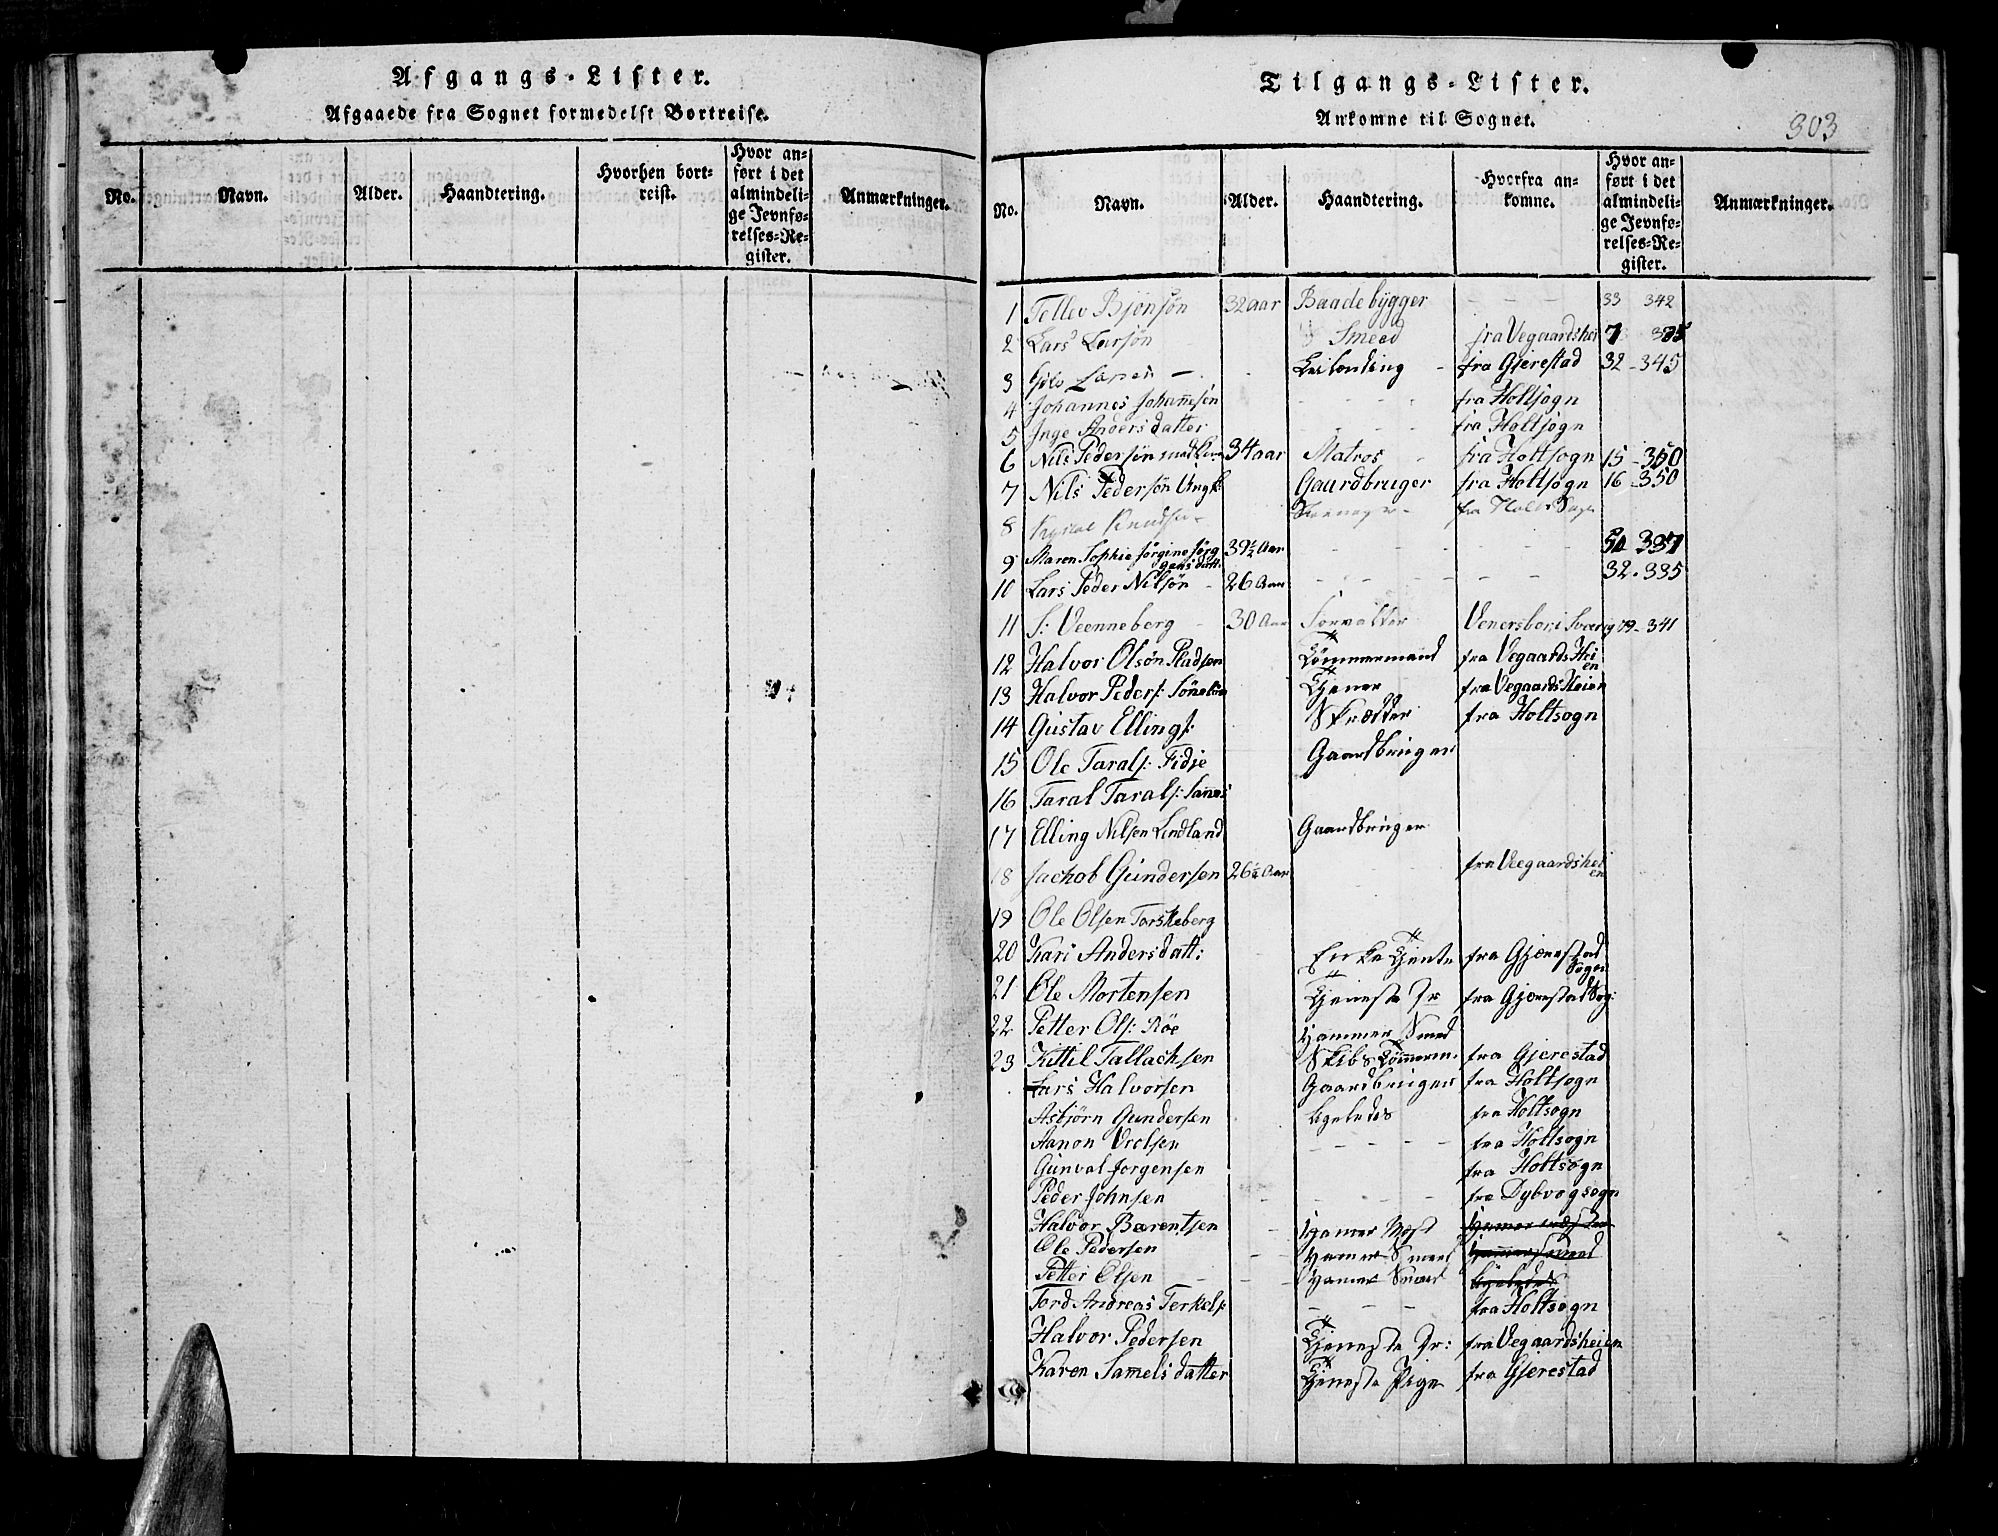 Afgangs-Lister.
Afgaaede fra Sognet formedelst Bortreise.
No. Navn. Alder. Haandtering. Hvorhen bortreist. Hvor anført i det almindelige Jevnførelses-Register. Anmærkninger.
Tilgangs-Lister.
Ankomne til Sognet.
303
No. Navn. Alder. Haandtering. Hvorfra ankomne. Hvor anført i det almindelige Jevnførelses-Register. Anmærkninger.
1 Tellev Bjönsön 32 aar Baadebÿgger - - - 33 342
2 Lars Larsön Smeed fra Vegaardshei 7
3 Larsen - Leilending - fra Gjerestad 32 - 345
4 Johannes Johannesen - - - fra Holtsogn
5 Inge Andersdatter - - - fra Holtsogn
6 Nils Pedersön med 34 aar Matros - fra Holtsogn 15 - 350
7 Nils Pedersön Ungk: Gaardbruger fra Holtsogn 16 - 350
8 Knudsen - fra Holts Sogn
9 Maren Sophie Jörgine Jörgensdatt: 39½ Aar - - - - - - 337
10 Lars Peder Nilsön - 26 Aar - - - - - - 32 - 335
11 S: Venneberg - 30 Aar Forvalter Venersbor i Sverig 79 - 341
12 Halvor Olsön Pladsen Tömmermand fra Vegaards Heien
13 Halvor Peders: Tjener fra Vegaards Heien
14 Gustav Ellings: Skrædder fra Holtsogn
15 Ole Tarals: Fidje Gaardbruger
16 Taral Tarals: Sanes
17 Elling Nilsen Lindland Gaardbruger
18 Jachob Gundersen 26¼ Aar - - fra Veegaardsheien
19 Ole Olsen Torskeberg
20 Kari Andersdatt: Enke Tjente fra Gjerestad Sogn
21 Ole Mortensen Tjeneste Dr fra Gjerestad Sog:
22 Petter Ols: Röe Hammer Smed
23 Kittil Tallachsen Skibs Tömmerm. fra Gjerestad
Lars Halvorsen Gaardbruger fra Holtsogn
Asbjörn Gundersen ligeledes fra Holtsogn
Aanon Vrolsen - - - - fra Holtsogn
Gunval Jorgensen fra Holtsogn
Peder Johnsen - - - - fra Dybvogsogn
Halvor Bærentsen - Hamer Mest
Ole Pedersen - Hamer Smed Hammersmed
Petter Olsen - - - Hamer Smed ligeledes
Tord Andreas Terkels: - - - fra Holtsogn
Halvor Pedersen Tjeneste Dr: fra Vegaardsheien
Karen Samelsdatter Tjeneste Pige fra Gjerestad